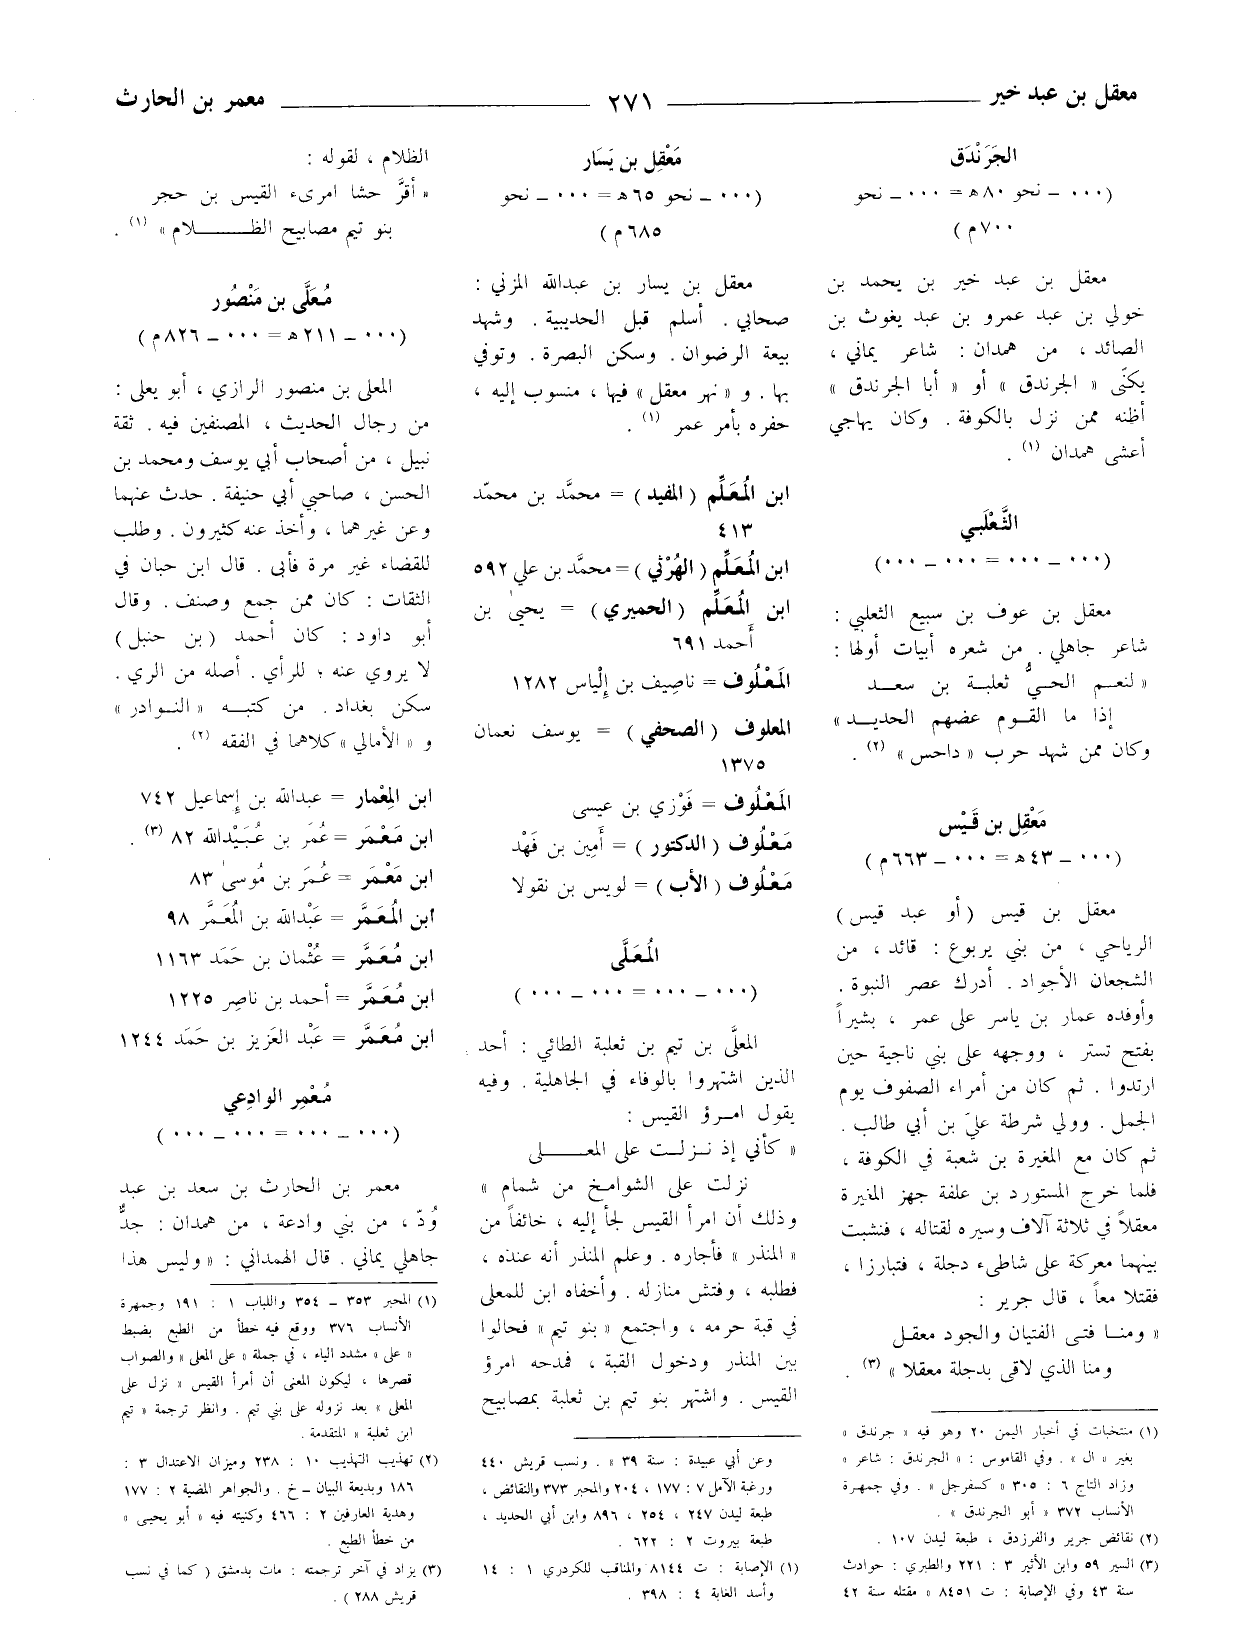 معقل بن عبد خير ــــــ ٢٧١ ــــــ معمر بن الحارث
الجَرَنْدَق
(٠٠٠ ـ نحو ٨٠ هـ = ٠٠٠ ـ نحو
٧٠٠ م)
معقل بن عبد خير بن يحمد بن
خولي بن عبد عمرو بن عبد يغوث بن
الصائد ، من همدان : شاعر يماني ،
يكنّى « الجرندق » أو « أبا الجرندق »
أظنه ممن نزل بالكوفة . وكان يهاجي
أعشى همدان (١) .
الثَّعْلَبي
(٠٠٠ ـ ٠٠٠ = ٠٠٠ ـ ٠٠٠)
معقل بن عوف بن سبيع الثعلبي :
شاعر جاهلي . من شعره أبيات أولها :
« لنعـم الحـيُّ ثعلبـة بن سعـد
إذا ما القـوم عضهم الحديـد »
وكان ممن شهد حرب « داحس » (٢) .
مَعْقِل بن قَيْس
(٠٠٠ ـ ٤٣ هـ = ٠٠٠ ـ ٦٦٣ م)
معقل بن قيس (أو عبد قيس)
الرياحي ، من بني يربوع : قائد ، من
الشجعان الأجواد . أدرك عصر النبوة .
وأوفده عمار بن ياسر على عمر ، بشيراً
بفتح تستر ، ووجهه على بني ناجية حين
ارتدوا . ثم كان من أمراء الصفوف يوم
الجمل . وولي شرطة عليّ بن أبي طالب .
ثم كان مع المغيرة بن شعبة في الكوفة ،
فلما خرج المستورد بن علفة جهز المغيرة
معقلاً في ثلاثة آلاف وسيره لقتاله ، فنشبت
بينهما معركة على شاطىء دجلة ، فتبارزا ،
فقتلا معاً ، قال جرير :
« ومنـا فتـى الفتيان والجود معقـل
ومنا الذي لاقى بدجلة معقلا » (٣) .
(١) منتخبات في أخبار اليمن ٢٠ وهو فيه « جرندق »
بغير « ال » . وفي القاموس : « الجرندق : شاعر »
وزاد التاج ٦ : ٣٠٥ « كسفرجل » . وفي جمهرة
الأنساب ٣٧٢ « أبو الجرندق » .
(٢) نقائض جرير والفرزدق ، طبعة ليدن ١٠٧ .
(٣) السير ٥٩ وابن الأثير ٣ : ٢٢١ والطبري : حوادث
سنة ٤٣ وفي الإصابة : ت ٨٤٥١ « مقتله سنة ٤٢
مَعْقِل بن يَسَار
(٠٠٠ ـ نحو ٦٥ هـ = ٠٠٠ ـ نحو
٦٨٥ م)
معقل بن يسار بن عبدالله المزني :
صحابي . أسلم قبل الحديبية . وشهد
بيعة الرضوان . وسكن البصرة . وتوفي
بها . و « نهر معقل » فيها ، منسوب إليه ،
حفره بأمر عمر (١) .
ابن المُعَلِّم ( المفيد ) = محمَّد بن محمّد
٤١٣
ابن المُعَلِّم ( الهُرْثي ) = محمَّد بن علي ٥٩٢
ابن المُعَلِّم (الحميري) = يحيىٰ بن
أَحمد ٦٩١
المَعْلُوف = ناصِيف بن إلْياس ١٢٨٢
المعلوف ( الصحفي ) = يوسف نعمان
١٣٧٥
المَعْلُوف = فَوْزي بن عيسى
مَعْلُوف ( الدكتور ) = أَمِين بن فَهْد
مَعْلُوف ( الأب ) = لويس بن نقولا
المُعَلَّى
(٠٠٠ ـ ٠٠٠ = ٠٠٠ ـ ٠٠٠)
المعلَّى بن تيم بن ثعلبة الطائي : أحد
الذين اشتهروا بالوفاء في الجاهلية . وفيه
يقول امـرؤ القيس :
« كأني إذ نـزلـت على المعـــلى
نزلت على الشوامـخ من شمام »
وذلك أن امرأ القيس لجأ إليه ، خائفاً من
« المنذر » فأجاره . وعلم المنذر أنه عنده ،
فطلبه ، وفتش منازله . وأخفاه ابن للمعلى
في قبة حرمه ، واجتمع « بنو تيم » فحالوا
بين المنذر ودخول القبة ، فمدحه امرؤ
القيس . واشتهر بنو تيم بن ثعلبة بمصابيح
وعن أبي عبيدة : سنة ٣٩ » . ونسب قريش ٤٤٠
ورغبة الآمل ٧ : ١٧٧ ، ٢٠٤ والمحبر ٣٧٣ والنقائض ،
طبعة ليدن ٢٤٧ ، ٢٥٤ ، ٨٩٦ وابن أبي الحديد ،
طبعة بيروت ٢ : ٦٢٢ .
(١) الإصابة : ت ٨١٤٤ والمناقب للكردري ١ : ١٤
وأسد الغابة ٤ : ٣٩٨ .
الظلام ، لقوله :
« أقرَّ حشا امرىء القيس بن حجر
بنو تيم مصابيح الظــــلام » (١) .
مُعَلَّى بن مَنْصُور
(٠٠٠ ـ ٢١١ هـ = ٠٠٠ ـ ٨٢٦ م)
المعلى بن منصور الرازي ، أبو يعلى :
من رجال الحديث ، المصنفين فيه . ثقة
نبيل ، من أصحاب أبي يوسف ومحمد بن
الحسن ، صاحبي أبي حنيفة . حدث عنهما
وعن غيرهما ، وأخذ عنه كثيرون . وطلب
للقضاء غير مرة فأبى . قال ابن حبان في
الثقات : كان ممن جمع وصنف . وقال
أبو داود : كان أحمد (بن حنبل)
لا يروي عنه ؛ للرأي . أصله من الري .
سكن بغداد . من كتبـه « النـوادر »
و « الأمالي » كلاهما في الفقه (٢) .
ابن المِعْمار = عبدالله بن إِسماعيل ٧٤٢
ابن مَعْمَر = عُمَر بن عُبَيْدالله ٨٢ (٣) .
ابن مَعْمَر = عُمَر بن مُوسىٰ ٨٣
ابن المُعَمَّر = عَبْدالله بن المُعَمَّر ٩٨
ابن مُعَمَّر = عُثْمان بن حَمَد ١١٦٣
ابن مُعَمَّر = أحمد بن ناصِر ١٢٢٥
ابن مُعَمَّر = عَبْد العَزيز بن حَمَد ١٢٤٤
مُعْمِر الوادِعي
(٠٠٠ ـ ٠٠٠ = ٠٠٠ ـ ٠٠٠)
معمر بن الحارث بن سعد بن عبد
وُدّ ، من بني وادعة ، من همدان : جدٌّ
جاهلي يماني . قال الهمداني : « وليس هذا
(١) المحبر ٣٥٣ ـ ٣٥٤ واللباب ١ : ١٩١ وجمهرة
الأنساب ٣٧٦ ووقع فيه خطأ من الطبع بضبط
« على » مشدد الياء ، في جملة « على المعلى » والصواب
قصرها ، ليكون المعنى أن أمرأ القيس « نزل على
المعلى » بعد نزوله على بني تيم . وانظر ترجمة « تيم
ابن ثعلبة » المتقدمة .
(٢) تهذيب التهذيب ١٠ : ٢٣٨ وميزان الاعتدال ٣ :
١٨٦ وبديعة البيان ـ خ . والجواهر المضية ٢ : ١٧٧
وهدية العارفين ٢ : ٤٦٦ وكنيته فيه « أبو يحيى »
من خطأ الطبع .
(٣) يزاد في آخر ترجمته : مات بدمشق ( كما في نسب
قريش ٢٨٨ ) .